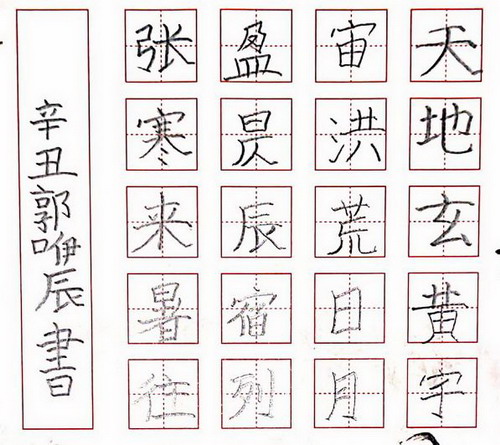 天地玄黄宇
宙洪荒日月
盈昃辰宿列
张寒来暑往
辛丑郭咿辰書